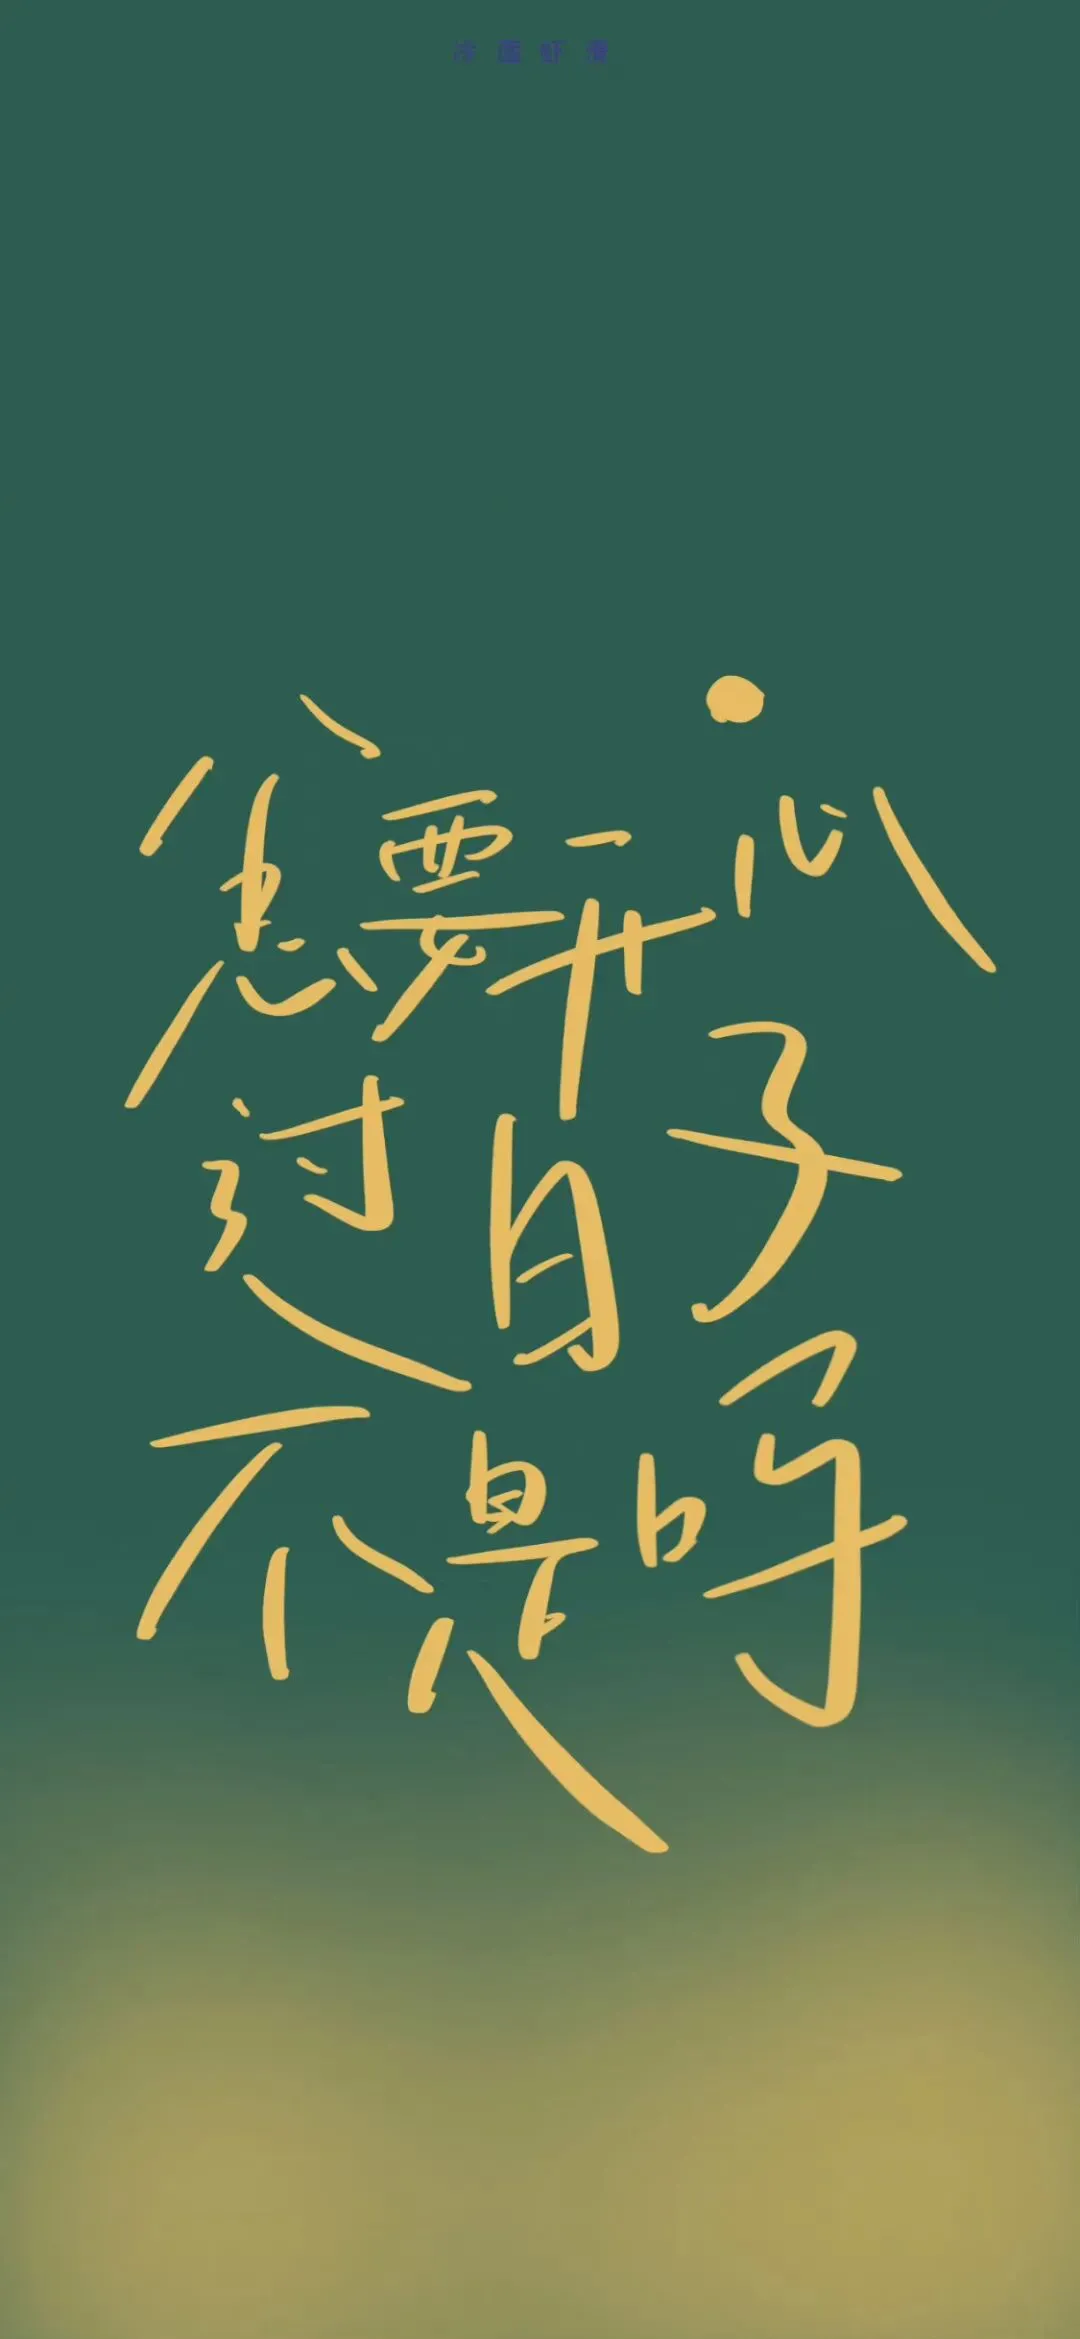 总要开心
过日子
不是吗